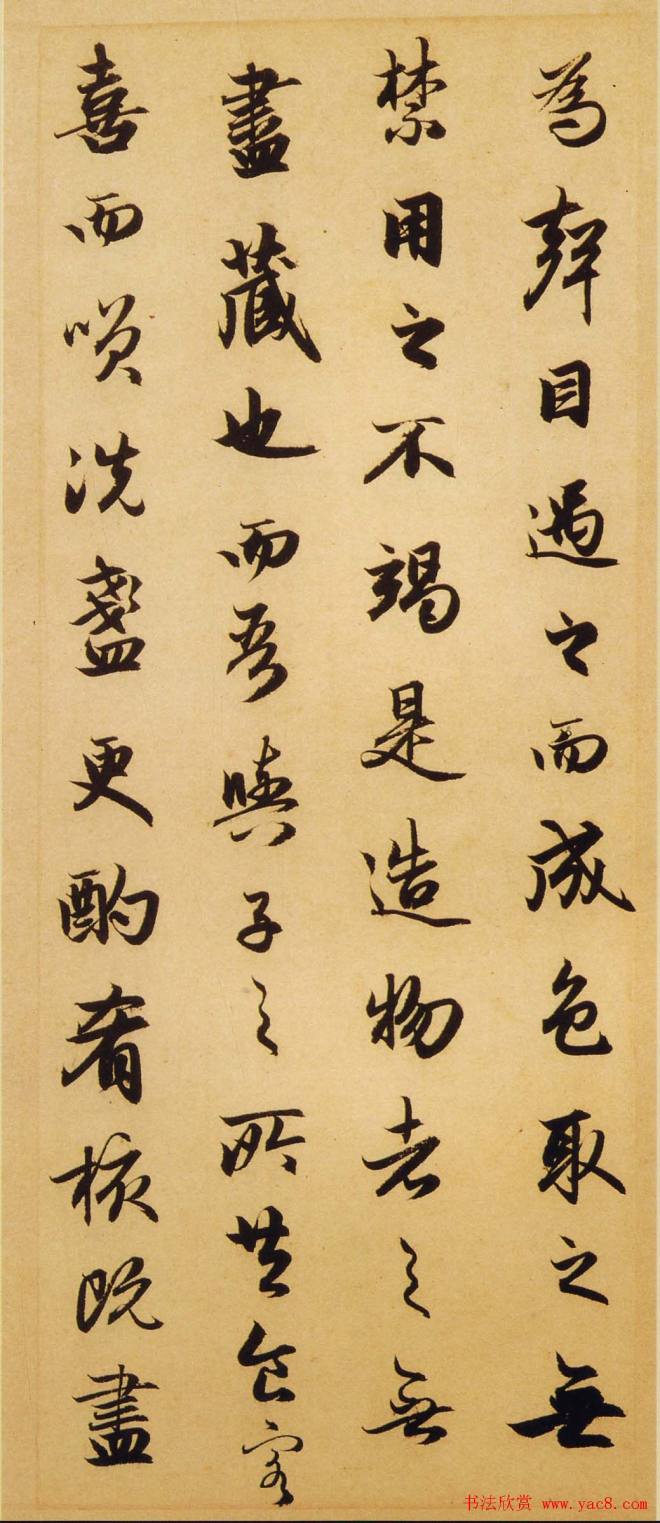 為聲目遇之而成色取之無
禁用之不竭是造物者之無
盡藏也而吾與子之所共食客
喜而咲洗盞更酌肴核既盡
书法欣赏 www.yac8.com